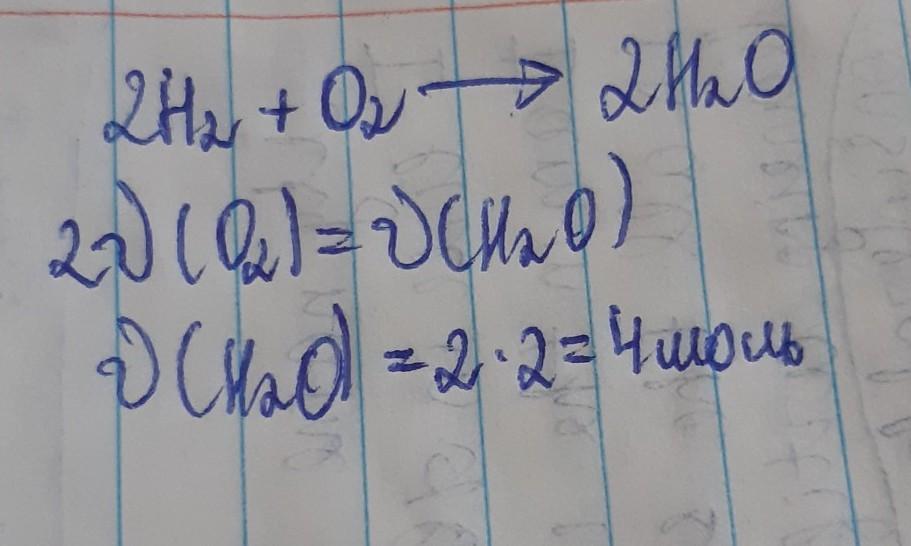 2H₂ + O₂ ⟶ 2H₂O
2ν(O₂) = ν(H₂O)
ν(H₂O) = 2 · 2 = 4 моль